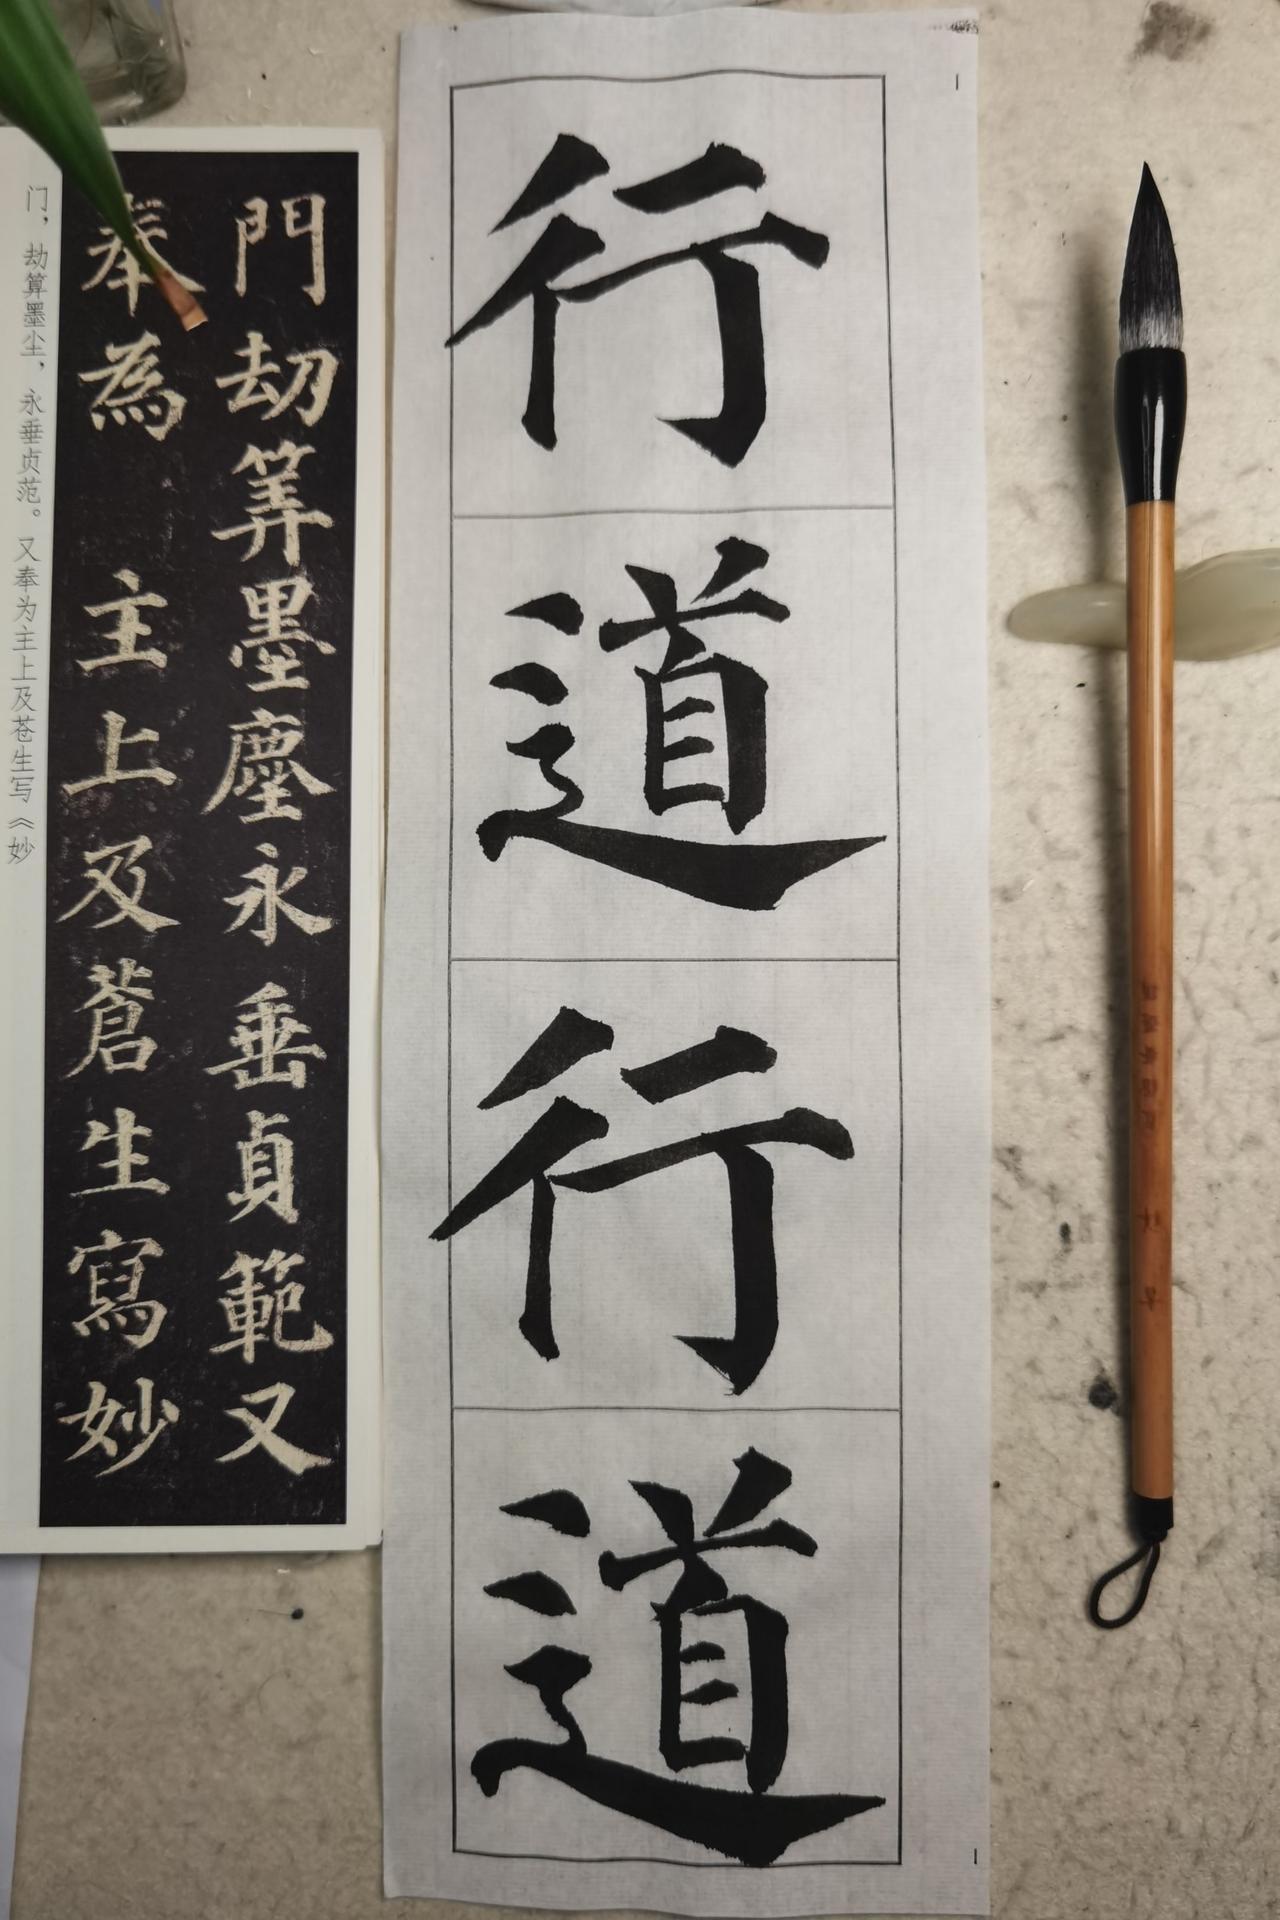 門劫筭墨塵永垂貞範又
奉為主上及蒼生寫妙
门，劫算墨尘，永垂贞范。又奉为主上及苍生写《妙
行道行道